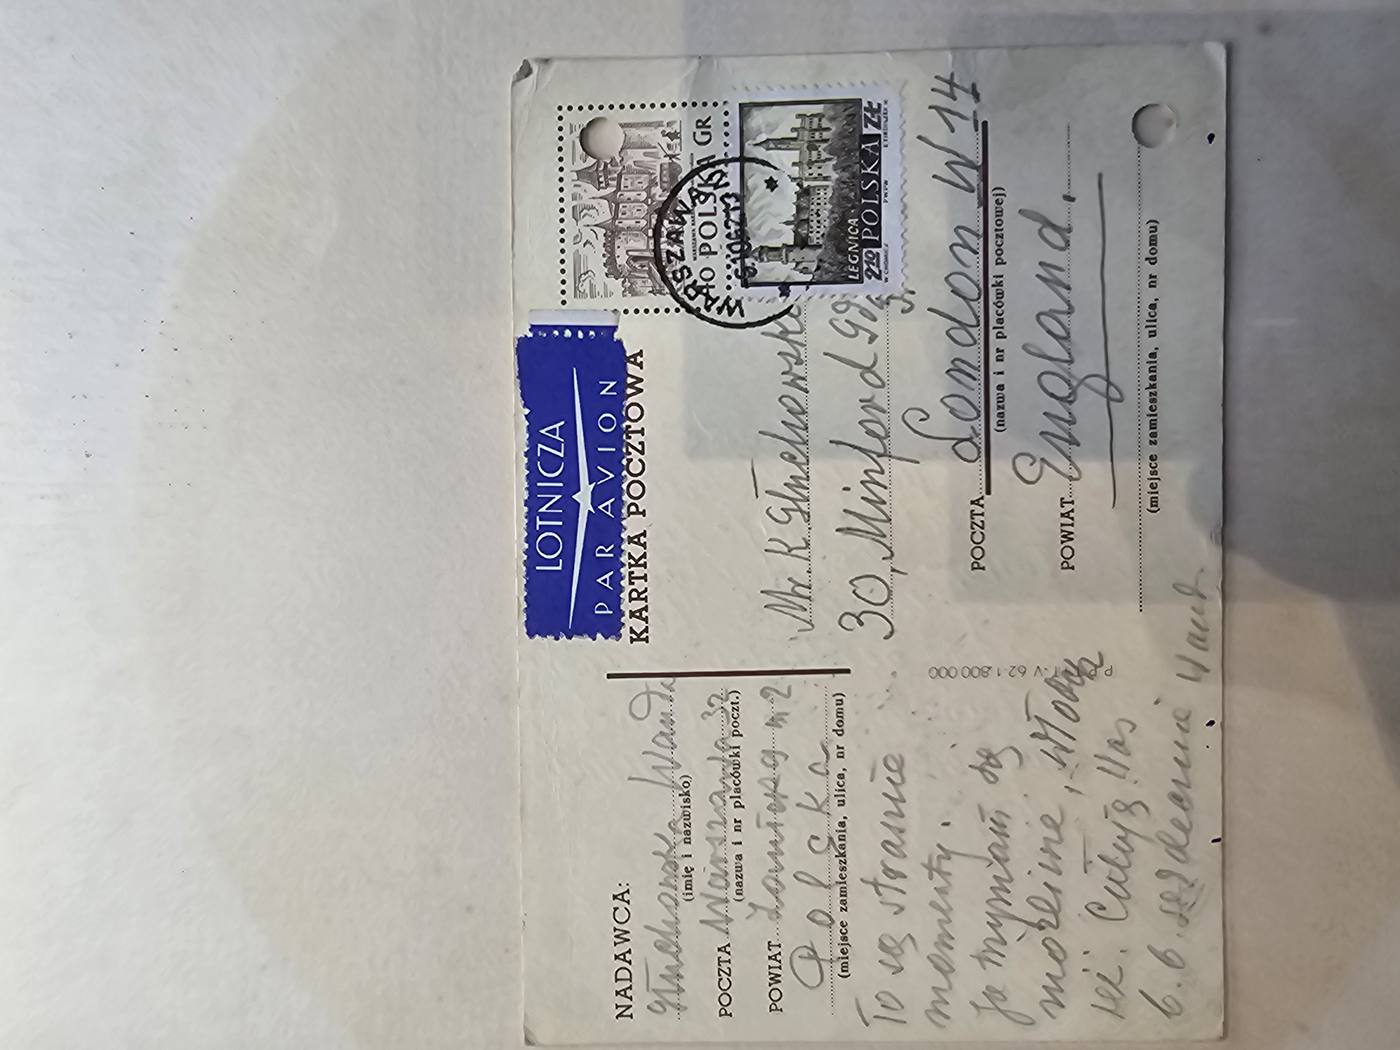 LOTNICZA
PAR AVION
KARTKA POCZTOWA
40 POLSKA GR
WARSZAWA
LEGNICA
2,20 POLSKA ZŁ
NADAWCA:
Głuchowska Wanda
(imię i nazwisko)
POCZTA Warszawa 32
(nazwa i nr placówki poczt.)
POWIAT m 2
Polska
(miejsce zamieszkania, ulica, nr domu)
To są straszne
momenty.
Ja trzymam się
możliwie,
się. Całuję Was
b. b. serdecznie Wand.
Mr K Głuchowski
30, Minford
POCZTA London W 14
(nazwa i nr placówki pocztowej)
POWIAT England.
(miejsce zamieszkania, ulica, nr domu)
V 62 1.800.000